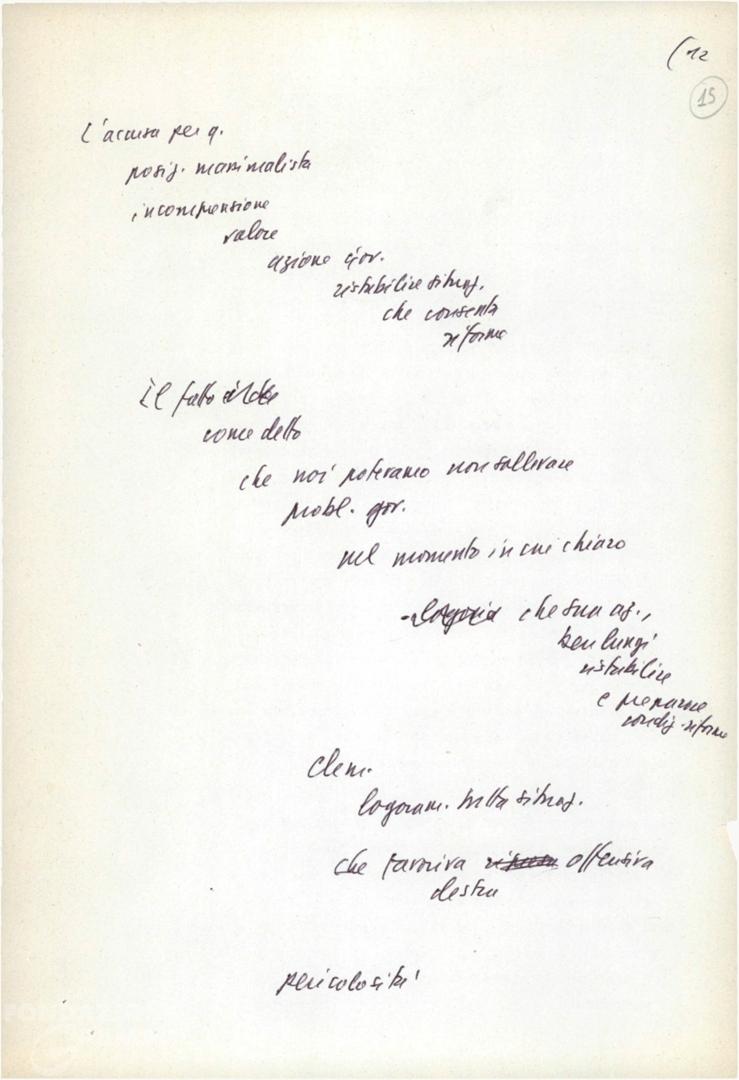 (12
15
L'accusa per q.
posiz. massimalista
incomprensione
valore
azione gov.
ristabilire situaz.
che consenta
riforme
Il fatto è che
come detto
che noi potevamo non sollevare
probl. gov.
nel momento in cui chiaro
che sua az.,
ben lungi
ristabilire
e preparare
condiz. riforme
elem.
logoram. tutta situaz.
che favoriva offensiva
destra
pericolosità